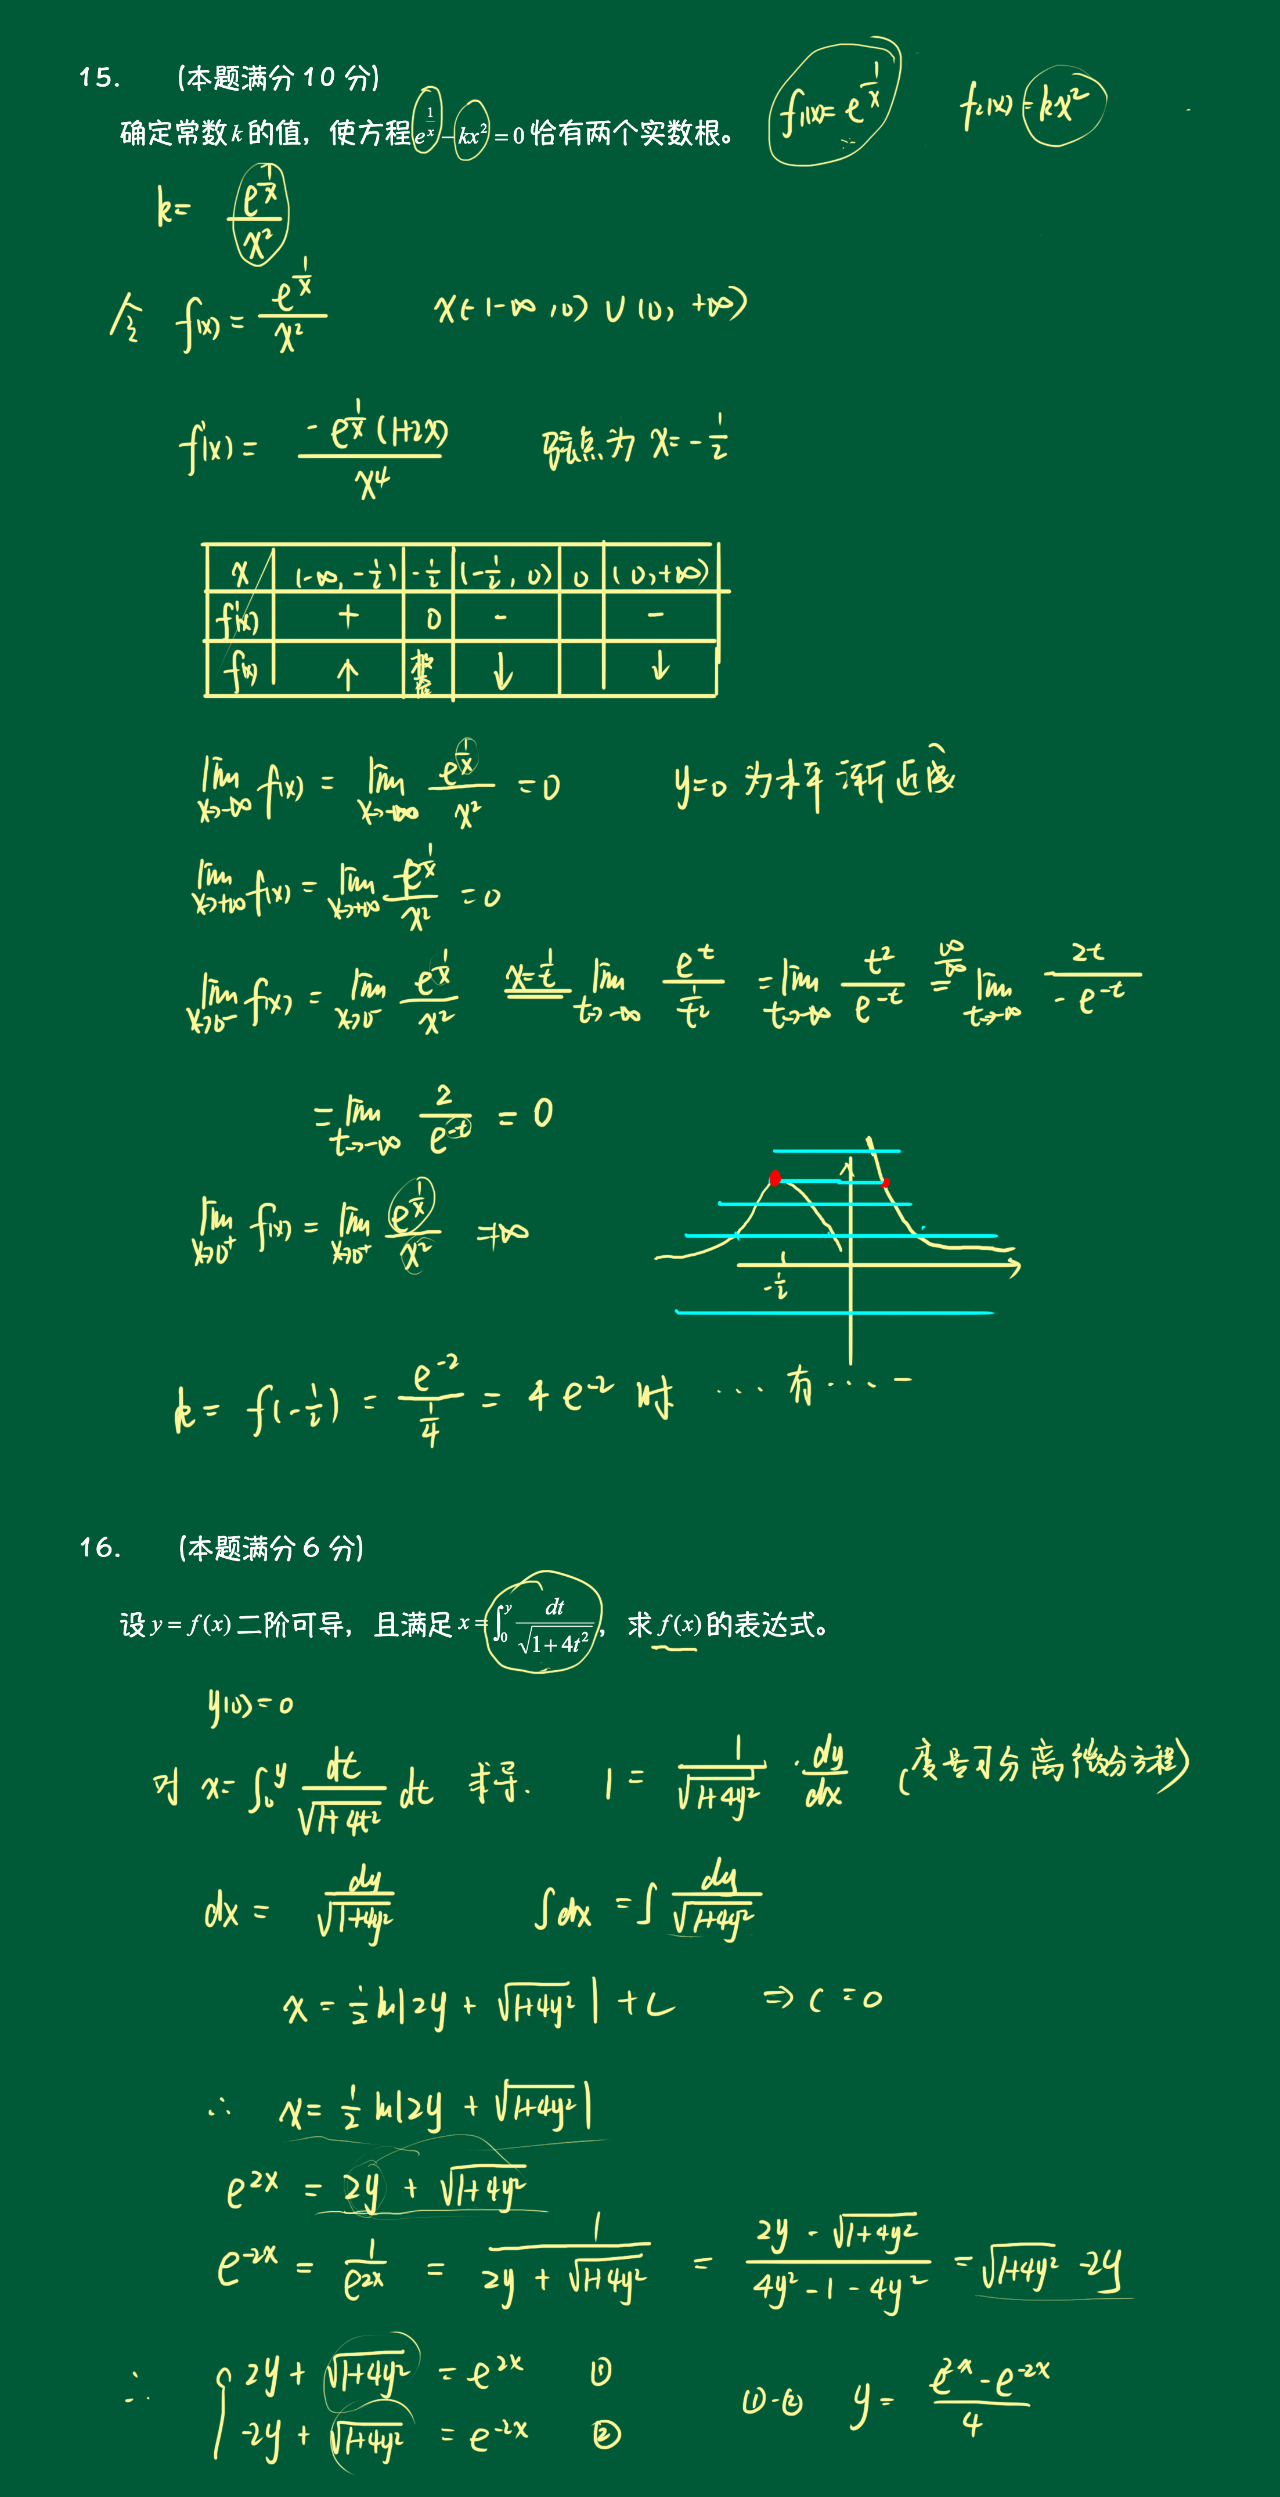 15. (本题满分10分)
f₁(x)= e^{1/x}  f₂(x)=kx²
确定常数 k 的值，使方程 e^{1/x} - kx² = 0 恰有两个实数根。
k= e^{1/x}/x²
令 f(x) = e^{1/x}/x²  x∈(-∞,0)∪(0,+∞)
f'(x) = -e^{1/x}(1+2x)/x⁴  驻点为 x=-1/2
x (-∞,-1/2) -1/2 (-1/2,0) 0 (0,+∞)
f'(x) + 0 - -
f(x) ↑ 极大值 ↓ ↓
lim_{x→-∞} f(x) = lim_{x→-∞} e^{1/x}/x² = 0  y=0 为水平渐近线
lim_{x→+∞} f(x) = lim_{x→+∞} e^{1/x}/x² = 0
lim_{x→0⁻} f(x) = lim_{x→0⁻} e^{1/x}/x² x=1/t lim_{t→-∞} e^t/(1/t²) = lim_{t→-∞} t²/e^{-t} ∞/∞ = lim_{t→-∞} 2t/(-e^{-t})
= lim_{t→-∞} 2/e^{-t} = 0
lim_{x→0⁺} f(x) = lim_{x→0⁺} e^{1/x}/x² = ∞
-1/2
k = f(-1/2) = e^{-2}/(1/4) = 4e^{-2} 时 ... 有 ...
16. (本题满分6分)
设 y = f(x) 二阶可导，且满足 x = ∫₀^y dt/√(1+4t²)，求 f(x) 的表达式。
y(0)=0
对 x= ∫₀^y dt/√(1+4t²) dt 求导. 1 = 1/√(1+4y²) · dy/dx (变量可分离微分方程)
dx = dy/√(1+4y²)  ∫dx = ∫ dy/√(1+4y²)
x = 1/2 ln|2y + √(1+4y²)| + C  ⇒ C = 0
∴ x= 1/2 ln|2y + √(1+4y²)|
e^{2x} = 2y + √(1+4y²)
e^{-2x} = 1/e^{2x} = 1/(2y + √(1+4y²)) = (2y - √(1+4y²))/(4y² - 1 - 4y²) = √(1+4y²) - 2y
∴ { 2y + √(1+4y²) = e^{2x} ①
-2y + √(1+4y²) = e^{-2x} ②
①-② y = (e^{2x} - e^{-2x})/4